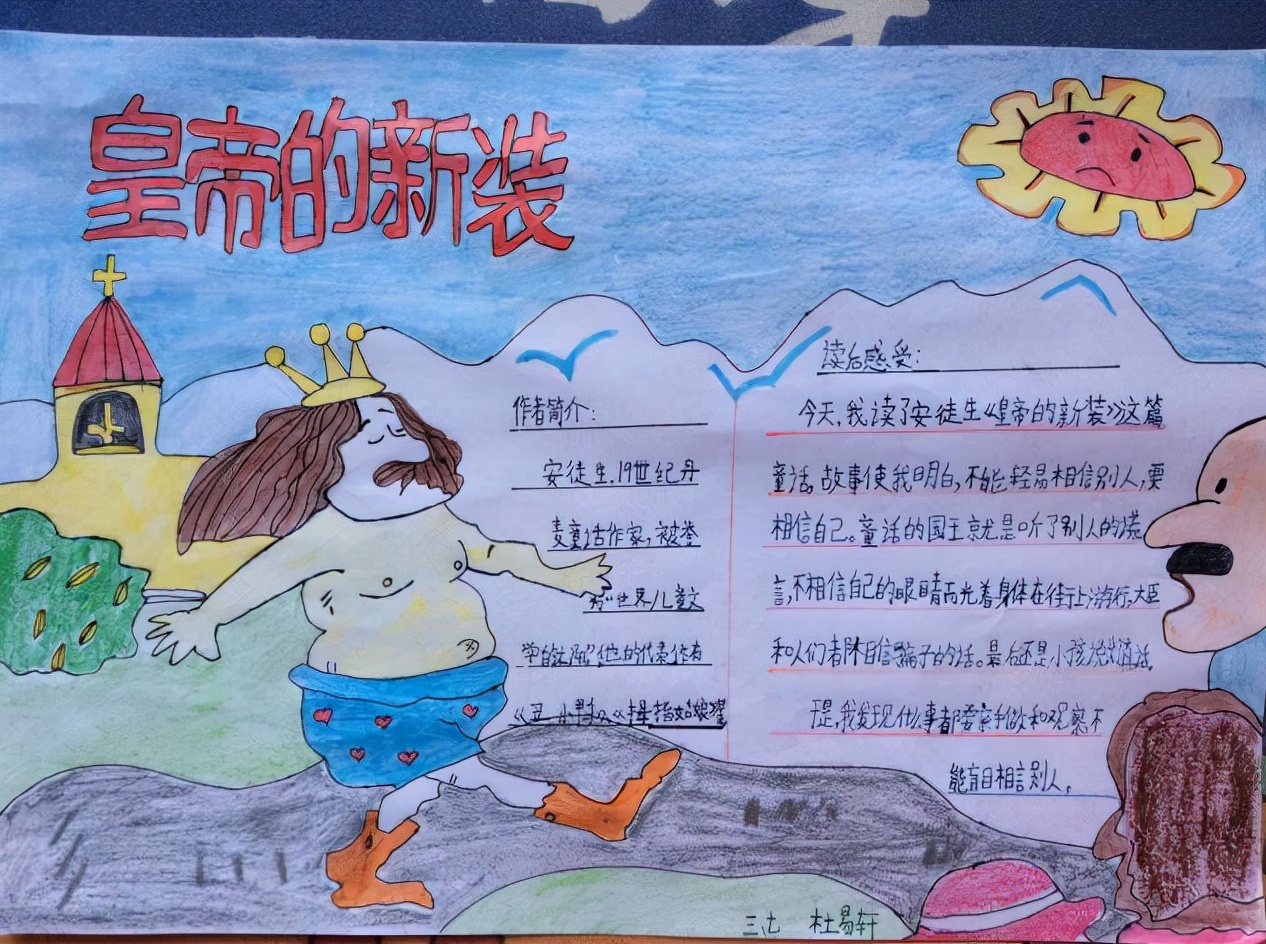 皇帝的新装
作者简介:
安徒生.19世纪丹
麦童话作家,被誉
为“世界儿童文
学的太阳”他的代表作有
《丑小鸭》《拇指姑娘》
读后感受:
今天,我读了安徒生《皇帝的新装》这篇
童话。故事使我明白,不能轻易相信别人,要
相信自己。童话的国王就是听了别人的谎
言,不相信自己的眼睛而光着身体在街上游行,大臣
和人们都相信骗子的话。最后还是小孩
于是,我发现什么事都要亲手做和观察不
能盲目相信别人。
杜易轩